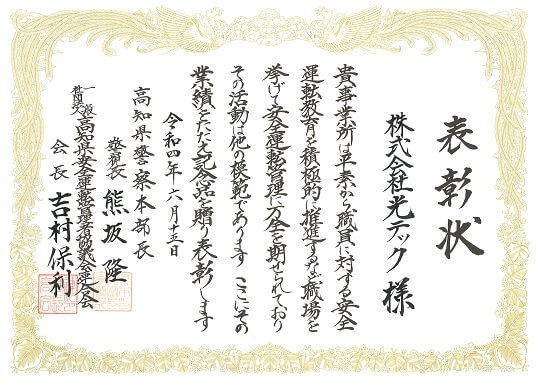 表彰状
株式会社光テック 様
貴事業所は平素から職員に対する安全
運転教育を積極的に推進するなど職場を
挙げて安全運転管理に万全を期せられており
その活動は他の模範であります ここにその
業績をたたえ記念品を贈り表彰します
令和四年六月十三日
高知県警察本部長
警視長 熊坂 隆
一般社団法人 高知県安全運転管理者協議会連合会
会長 吉村保利